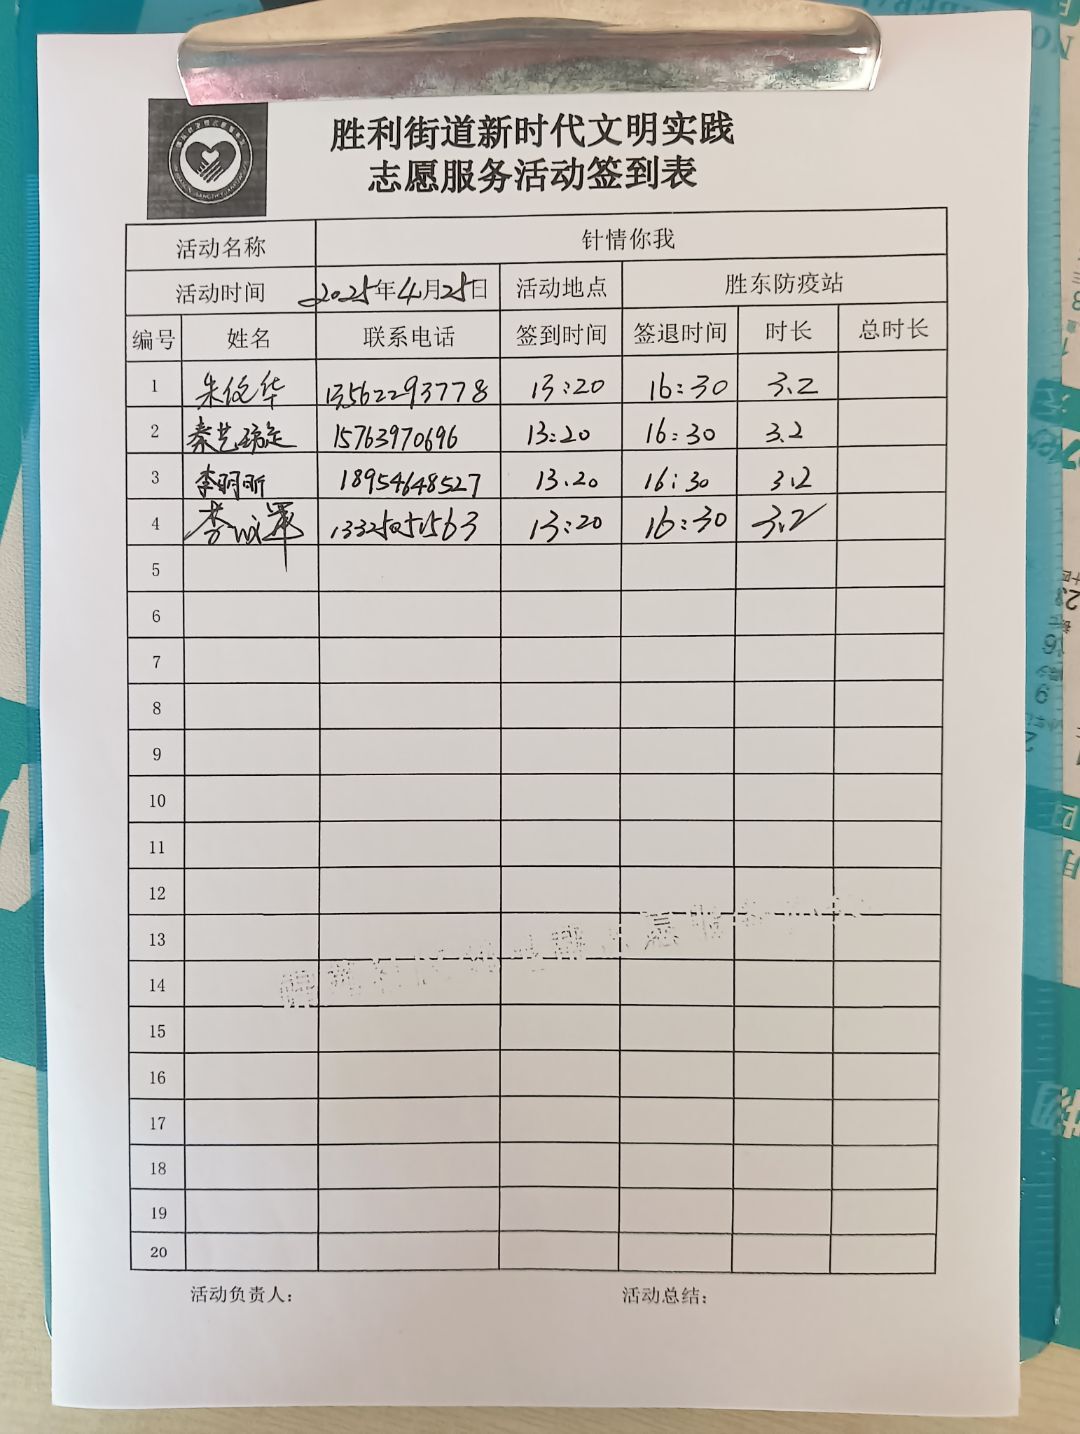 胜利街道新时代文明实践
志愿服务活动签到表
活动名称 针情你我
活动时间 2025年4月25日 活动地点 胜东防疫站
编号 姓名 联系电话 签到时间 签退时间 时长 总时长
1 朱俊华 13562293778 13:20 16:30 3.2
2 秦艺璇 15763970696 13:20 16:30 3.2
3 李明昕 18954648527 13.20 16:30 3.2
4 李 13:20 16:30 3.2
5
6
7
8
9
10
11
12
13
14
15
16
17
18
19
20
活动负责人: 活动总结: